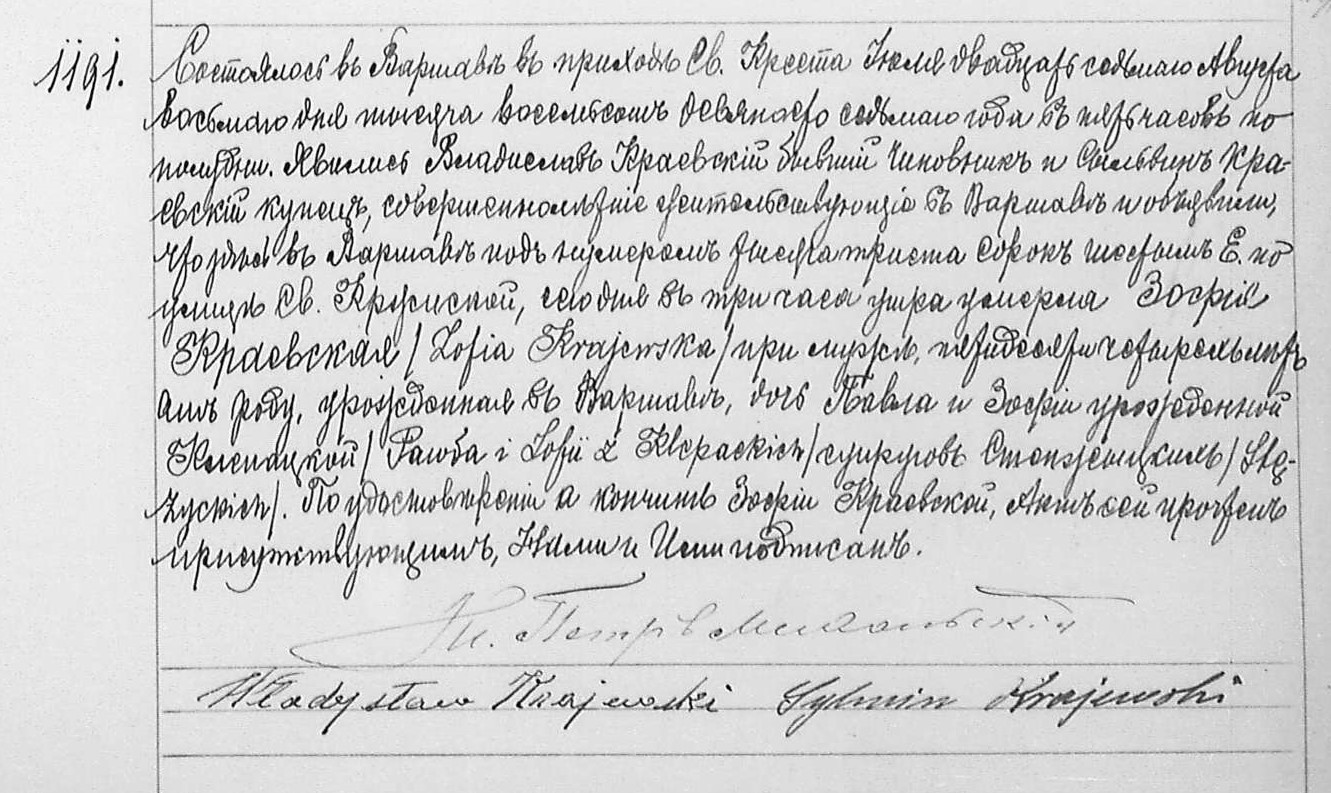 1191.
Состоялось въ Варшавѣ въ приходѣ Св. Креста Іюля двадцать седьмаго Августа
восьмаго дня тысяча восемьсотъ девяносто седьмаго года въ пять часовъ по
полудни. Явились Владиславъ Краевскій бывшій чиновникъ и Сыльвинъ Кра-
евскій купецъ, совершеннолѣтніе жительствующіе въ Варшавѣ и объявили,
что здѣсь въ Варшавѣ подъ нумеромъ тысяча триста сорокъ шестымъ Е. по
улицѣ Св. Кружиской, сего дня въ три часа утра умерла Зофія
Краевская / Zofia Krajewska / при мужѣ, пятидесяти четырехъ лѣтъ
отъ роду, урожденная въ Варшавѣ, дочь Павла и Зофіи урожденной
Клепацкой / Pawła i Zofii z Klepackich / супруговъ Стенжицкихъ / Stę-
życkich /. По удостовѣреніи о кончинѣ Зофіи Краевской, Актъ сей прочтенъ
присутствующимъ, Нами и Ими подписанъ.
Кс. Петръ
Władysław Krajewski Sylwin Krajewski